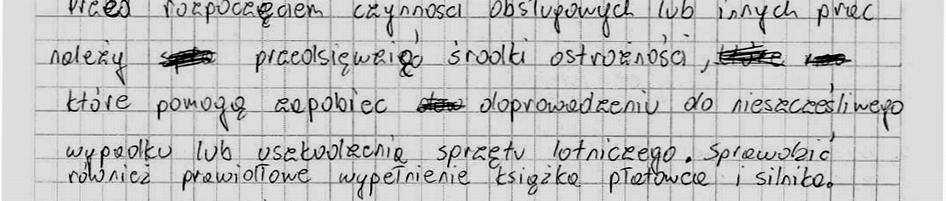 Przed rozpoczęciem czynności obsługowych lub innych prac
należy przedsięwziąć środki ostrożności,
które pomogą zapobiec doprowadzeniu do nieszcześliwego
wypadku lub uszkodzenia sprzętu lotniczego. Sprawdzić
również prawidłowe wypełnienie książka płatowca i silnika.